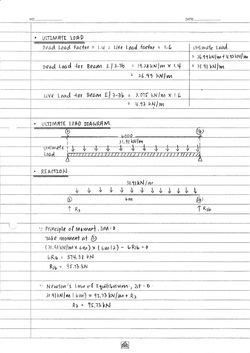 NO.
DATE
• ULTIMATE LOAD
Dead Load Factor = 1.4 ; Live Load Factor = 1.6
Ultimate Load
Dead Load for Beam 2/3-3b = 19.28 kN/m × 1.4
= 26.99 kN/m
= 26.99 kN/m + 4.92 kN/m
= 31.91 kN/m
Live Load for Beam 2/3-3b = 3.075 kN/m × 1.6
= 4.92 kN/m
• ULTIMATE LOAD DIAGRAM
6000
31.91 kN/m
Ultimate
Load
• REACTION
31.91 kN/m
6m
R3
R3b
∵ Principle of Moment, ΣM=0
Take moment at
(31.91 kN/m × 6m) × (6m/2) - 6R3b = 0
6R3b = 574.38 kN
R3b = 95.73 kN
∵ Newton's Law of Equilibrium, ΣF = 0
31.91 kN/m (6m) = 95.73 kN + R3
R3 = 95.73 kN